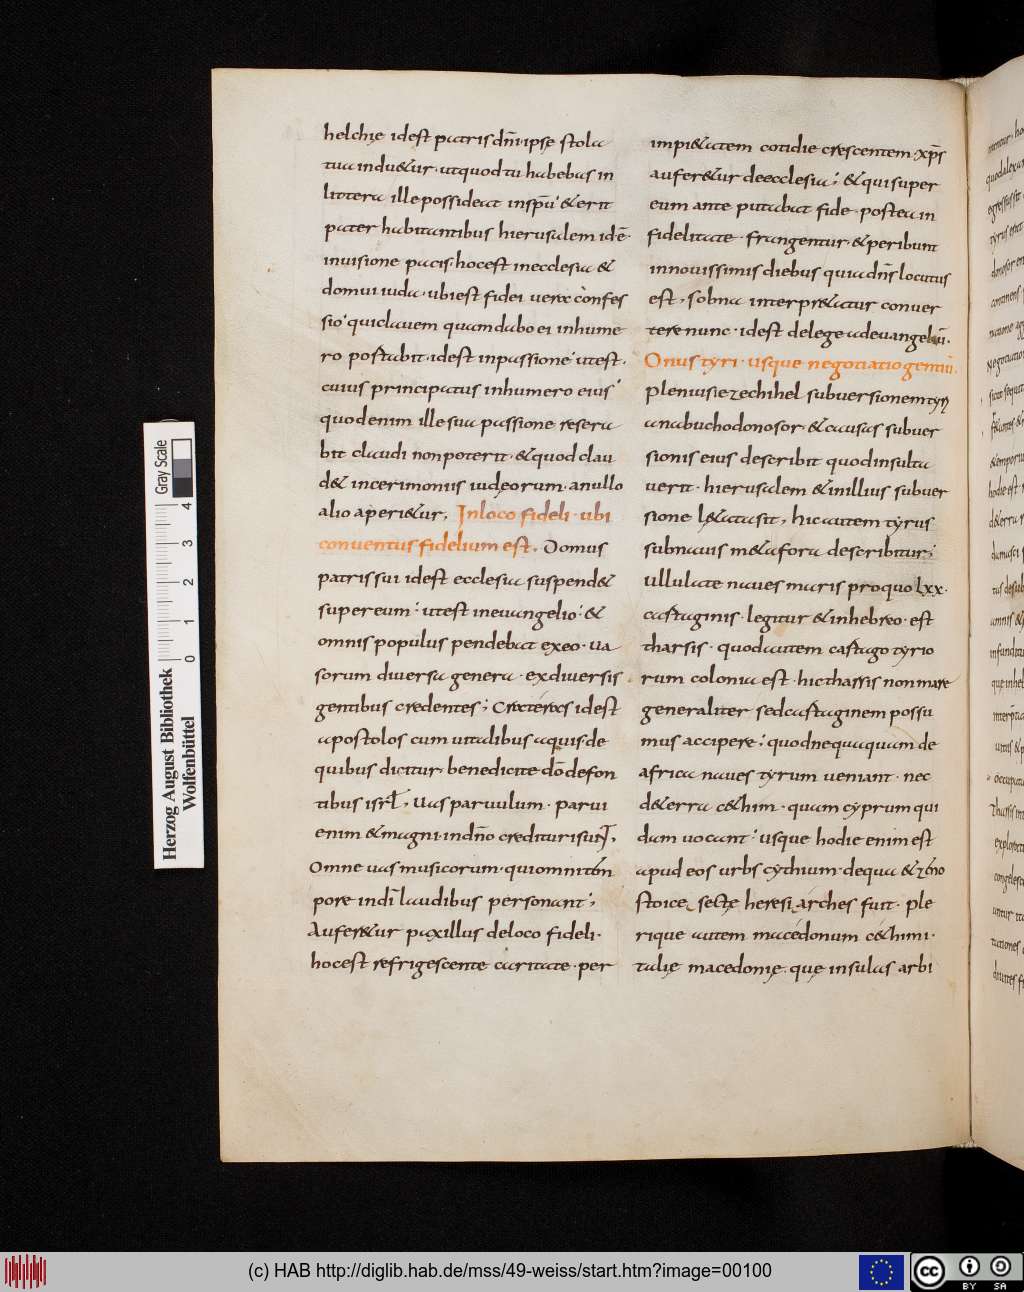 helchię idest patris dn̄i ipse stola
tua indu&ur · utquod tu habebas in
littera ille possideat insp̄u · & erit
pater habitantibus hierusalem idē
inuisione pacis · hocest inecclesia &
domui iuda · ubiest fidei uerae confes
sio · quiclauem quam dabo ei inhume
ro postabit · idest inpassione · utest ·
cuius principatus inhumero eius ·
quodenim ille sua passione resera
bit claudi nonpoterit · & quod clau
d& incerimoniis iudęorum · anullo
alio aperi&ur, Inloco fideli · ubi
conuentus fidelium est, Domus
patris sui idest ecclesia suspend&
super eum · utest ineuangelio · &
omnis populus pendebat exeo · ua
sorum diuersa genera · exdiuersis
gentibus credentes; Crateras idest
apostolos cum uitalibus aquis · de
quibus dicitur, benedicite dō defon
tibus isrƚ, Uas paruulum · parui
enim & magni · indn̄o creditur isurƚ,
Omne uas musicorum · quiomni tēm
pore indī laudibus personant;
Aufer&ur paxillus deloco fideli ·
hocest refrigescente caritate · per
impi&atem cotidie crescentem · xp̄s
aufer&ur deecclesia; & qui super
eum ante putabat fide · postea in
fidelitate · frangentur · & peribunt
innouissimis diebus quia dn̄s locutus
est, sobna interpr&atur conuer
tere nunc · idest delege adeuangeliū ·
Onus tyri · usque negotiatio gentiū ·
Plenius iezechihel subuersionem tyri
anabuchodonosor · & causas subuer
sionis eius describit quodinsulta
uerit · hierusalem & inillius subuer
sione l&atasit, hic autem tyrus
subnauis m&afora describitur;
Ullulate naues maris proquo lxx ·
castaginis · legitur & inhebreo · est
tharsis · quodautem castago tyrio
rum colonia est · hic tharsis non mare
generaliter sed castaginem possu
mus accipere; quod nequaquam de
africa naues tyrum ueniant · nec
d&erra c&him · quam cyprum qui
dam uocant · usque hodie enim est
apud eos urbs cythium · dequa & zeno
stoicę sectę heresiarches fuit · ple
rique autem macedonum c&himi ·
talię macedonię · quę insulas arbi
Gray Scale
4
3
2
1
0
Herzog August Bibliothek
Wolfenbüttel
(c) HAB http://diglib.hab.de/mss/49-weiss/start.htm?image=00100
cc
BY SA